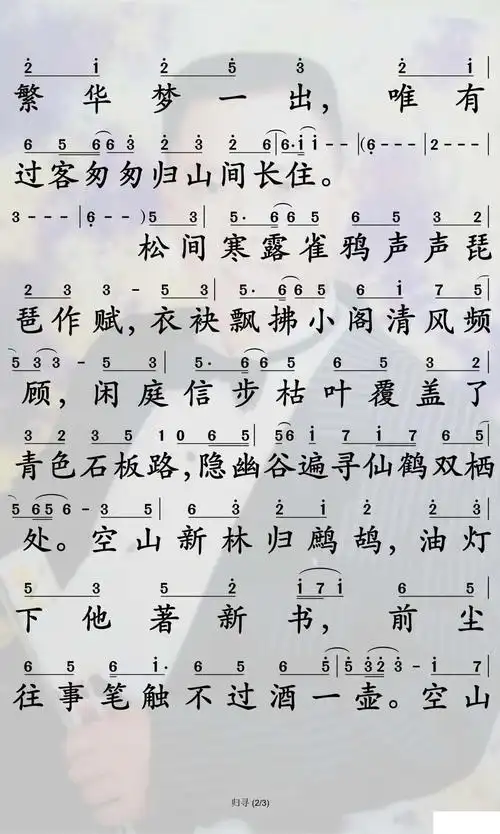 2 i 2 5 3 2 i
繁华梦一出，唯有
6 5 6 6 6 3 2 3 2 6 5 6 2 6· i i - - -|(6 - - -|2 - - -|
过客匆匆归山间长住。
3 - - -|(6 - - -) 5 3| 5· 6 6 5 6 5 3 2|
松间寒露雀鸦声声琵
2 3 3 - 5 3| 5· 6 6 5 6 i 7 5|
琶作赋，衣袂飘拂小阁清风频
5 3 3 - 5 3| 5· 6 6 5 6 5 3 2|
顾，闲庭信步枯叶覆盖了
3 2 3 5 1 0 6 5| 5 6 i 7 i 7 6 5|
青色石板路，隐幽谷遍寻仙鹤双栖
5 6 5 6 - 3 5| 6 3 2 i 2 2 3|
处。空山新林归鹧鸪，油灯
5 3 5 2 i 7 i 6 5|
下他著新书，前尘
6 5 6 i· 6 5 6 5| 5 3 2 3 - i 7|
往事笔触不过酒一壶。空山
归寻 (2/3)